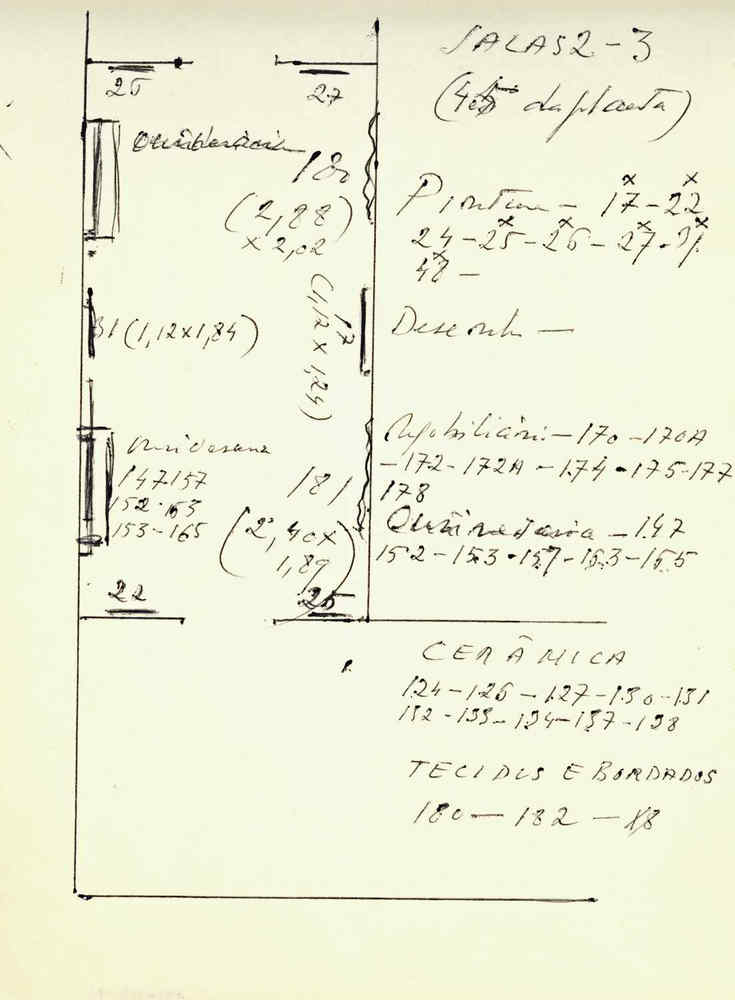 SALAS 2-3
(4 da planta)
Pintura - 17-22
24-25-26-27-31
48 -
Desenho -
Mobiliário - 170-170A
-172-172A-174-175-177
178
Ourivesaria - 147
152-153-157-163-165
CERÂMICA
124-126-127-130-131
132-133-134-137-138
TECIDOS E BORDADOS
180-182-
26
27
Ourivesaria
180
(2,88)
x 2,02
31 (1,12x1,84)
17
(1,12 x 1,24)
Ourivesaria
147 157
152-163
153-165
181
(2,40x
1,89)
22
25